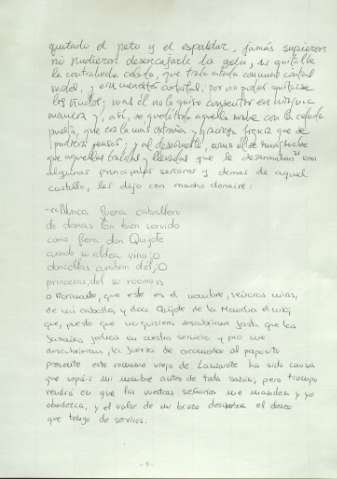 quitado el peto y el espaldar, jamás supieron
ni pudieron desencajarle la gola, ni quitalle
la contrahecha celada, que traía atada con unas cintas
verdes, y era menester cortarlas, por no poder quitarse
los ñudos; mas él no lo quiso consentir en ninguna
manera y, así, se quedó toda aquella noche con la celada
puesta, que era la más graciosa y estraña figura que se
pudiera pensar; y al desarmarle, como él se imaginaba
que aquellas traídas y llevadas que le desarmaban eran
algunas principales señoras y damas de aquel
castillo, les dijo con mucho donaire:
-Nunca fuera caballero
de damas tan bien servido
como fuera don Quijote
cuando su aldea vino;
doncellas curaban dél;
princesas, del su rocino
o Rocinante, que este es el nombre, señoras mías,
de mi caballo, y don Quijote de la Mancha el mío;
que, puesto que no quisiera descubrirme hasta que las
fazañas fechas en vuestro servicio y pro me
descubrieran, la fuerza de acomodar al propósito
presente este romance viejo de Lanzarote ha sido causa
que sepáis mi nombre antes de toda sazón; pero tiempo
vendrá en que las vuestras señorías me manden y yo
obedezca, y el valor de mi brazo descubra el deseo
que tengo de serviros.
- 9 -